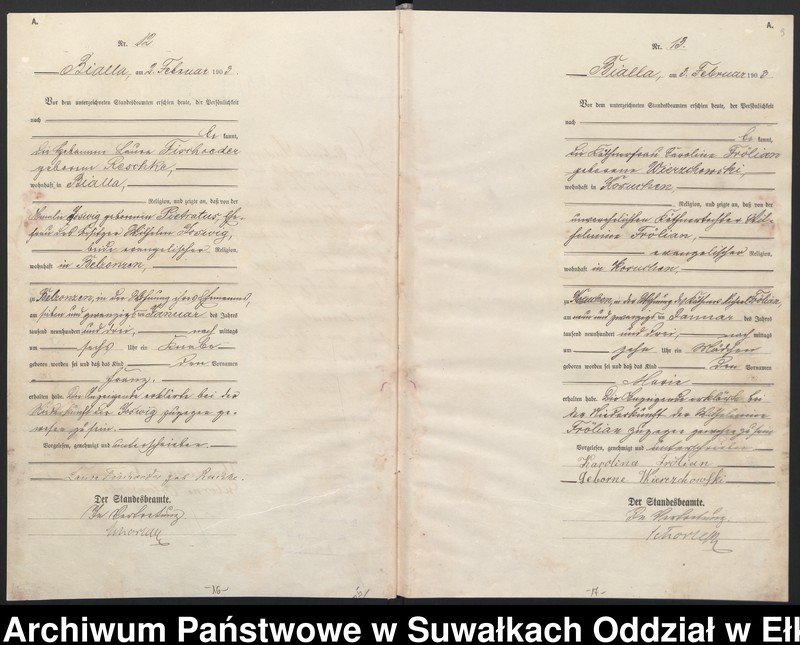 A.
Nr. 12
Bialla, am 2. Februar 1903.
Vor dem unterzeichneten Standesbeamten erschien heute, die Persönlichkeit
nach
be kannt,
die Hebamme Laura Fischoeder
geborene Reschke,
wohnhaft in Bialla,
Religion, und zeigte an, daß von der
Amalie Joswig geborenen Pietratus, Ehe-
frau des Besitzer Wilhelm Joswig,
beide evangelischer Religion,
wohnhaft in Belzonzen,
in Belzonzen, in der Wohnung ihres Ehemannes,
am sieben und zwanzigsten Januar des Jahres
tausend neunhundert und drei, nach mittags
um sechs Uhr ein Knabe
geboren worden sei und daß das Kind den Vornamen
Franz.
erhalten habe. Die Anzeigende erklärte bei der
Niederkunft der Joswig zugegen ge-
wesen zu sein.
Vorgelesen, genehmigt und unterschrieben.
Laura Fischoeder geb Reschke.
Der Standesbeamte.
In Vertretung.
-16-
A.
Nr. 13.
Bialla, am 2. Februar 1903.
Vor dem unterzeichneten Standesbeamten erschien heute, der Persönlichkeit
nach
be kannt,
die Käthnerfrau Caroline Frölian
geborene Wierzchowski,
wohnhaft in Kosuchen,
Religion, und zeigte an, daß von der
unverehelichten Käthnertochter Wil-
helmine Frölian,
evangelischer Religion,
wohnhaft in Kosuchen,
in Kosuchen, in der Wohnung des Käthner Frölian,
am neun und zwanzigsten Januar des Jahres
tausend neunhundert und drei, nach mittags
um zehn Uhr ein Mädchen
geboren worden sei und daß das Kind den Vornamen
Marie
erhalten habe. Die Anzeigende erklärte bei
der Niederkunft der Wilhelmine
Frölian zugegen gewesen zu sein
Vorgelesen, genehmigt und unterschrieben
Karolina Frölian
Geborne Wierzchowski
Der Standesbeamte.
In Vertretung.
-17-
Archiwum Państwowe w Suwałkach Oddział w Ełk